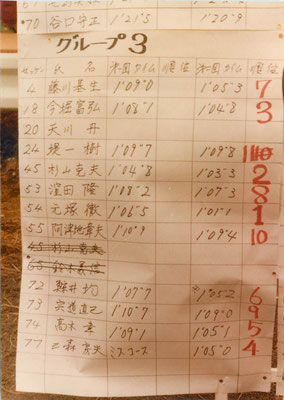 70 谷口守正 1'21"5 1'20"9
グループ3
ゼッケン 氏 名 本田タイム 順位 本田タイム 順位
4 藤川基生 1'09"0 1'05"3 7
18 今堀富弘 1'08"1 1'04"8 3
20 天川 丹
24 堤 一樹 1'09"7 1'09"8 11
45 杉山克夫 1'04"8 1'03"3 2
53 窪田 隆 1'08"2 1'07"3 8
54 元塚 徹 1'06"5 1'01"1 1
55 阿津地隼夫 1'10"9 1'09"4 10
45 杉山克夫
65 鈴木義信
72 鞍井 均 1'07"7 1'05"2 6
73 宍道直己 1'10"7 1'09"0 9
74 高木 幸 1'09"1 1'05"1 5
77 三森 ミスコース 1'05"0 4